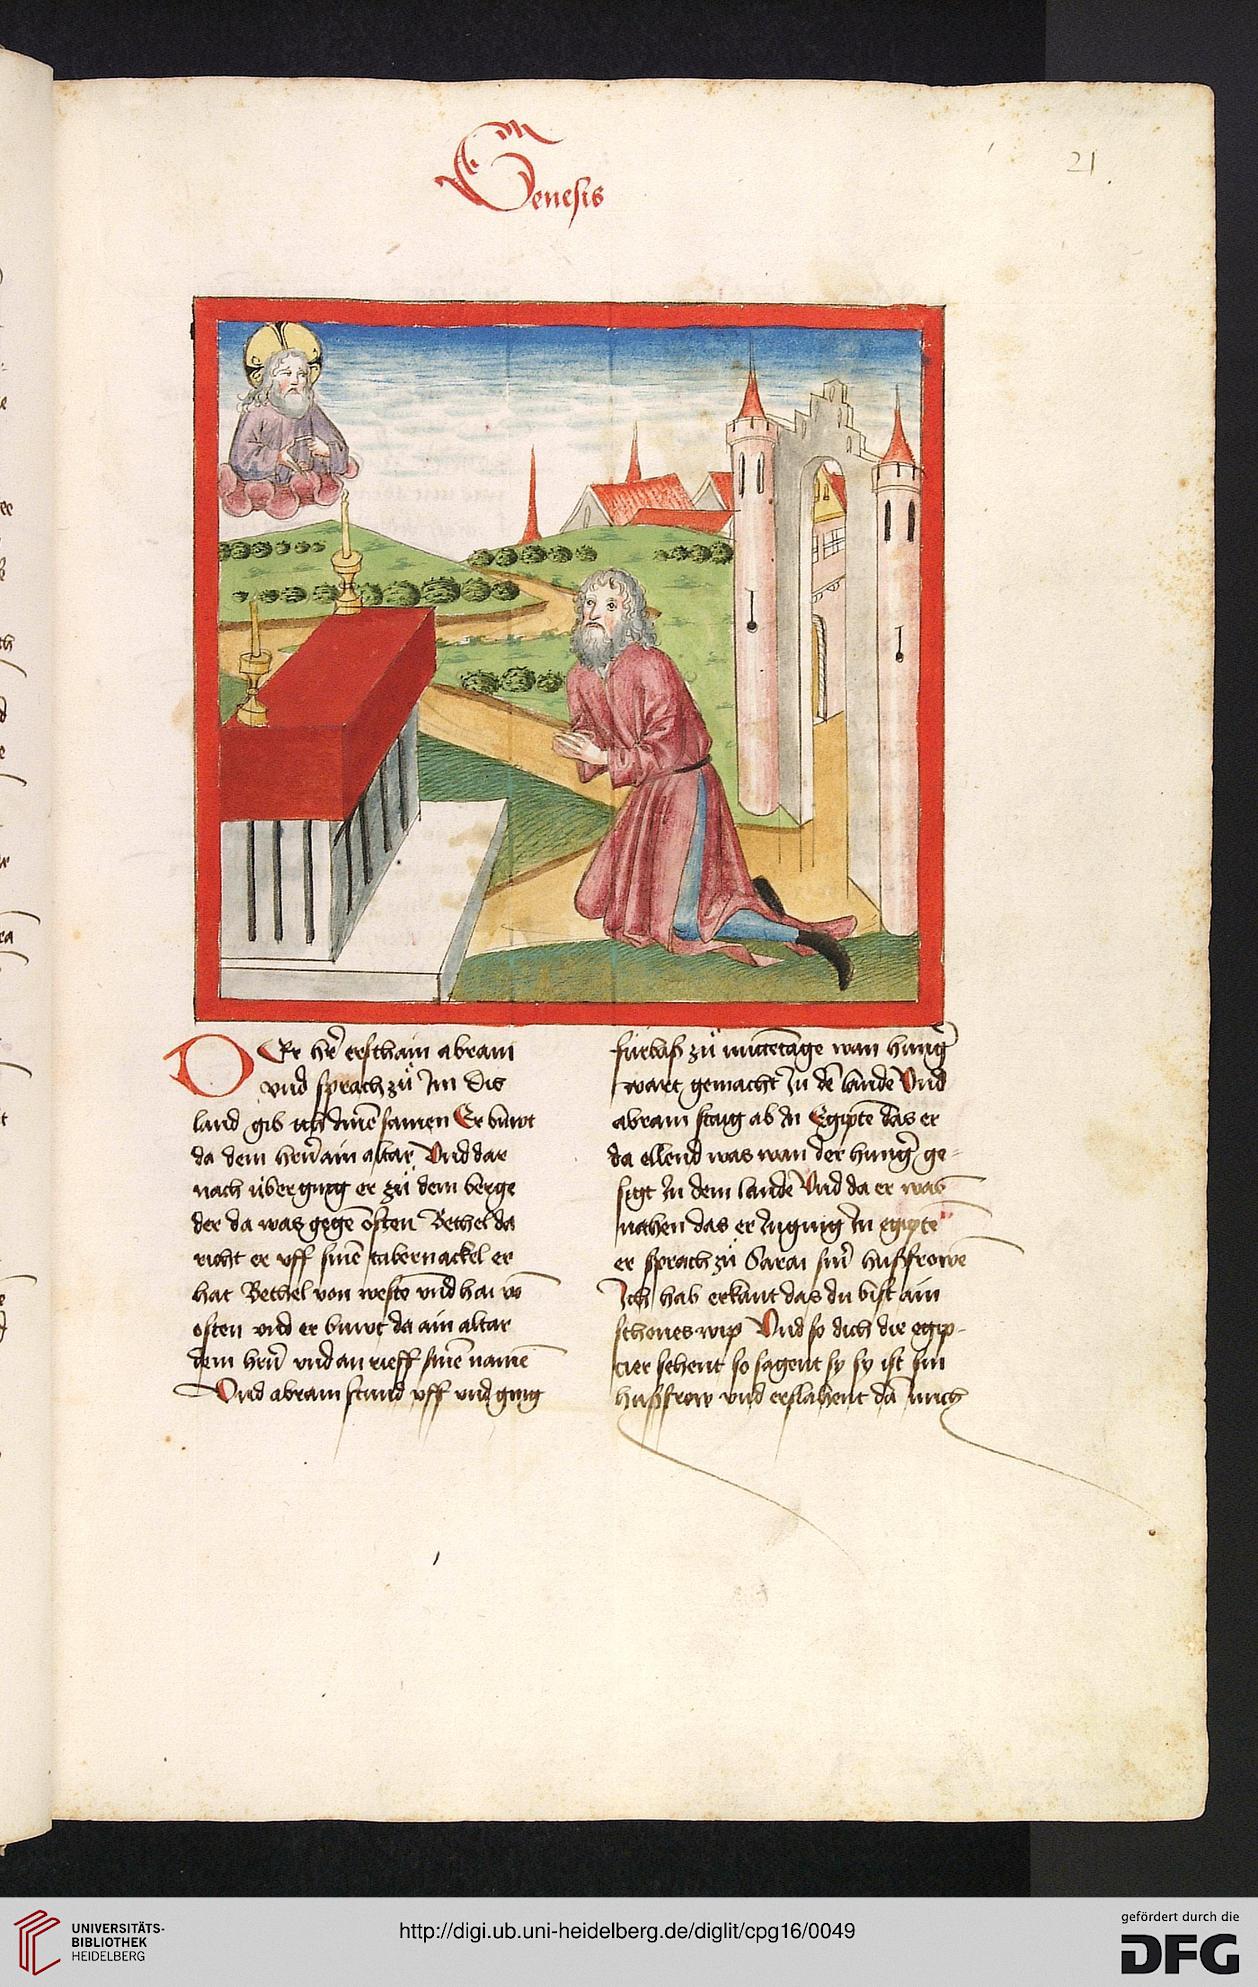 Genesis
21
DEr hr̃ erschain abram
vnd sprach zů Im Dis
land gib ich dinē samen Er buwt
da dem herñ ain altar Vnd dar
nach uberging er zů dem berge
der da was gegē osten Bethel da
richt er uff sinē tabernackel er
hat Bethel von westē vnd hai võ
osten vnd er buwt da ain altar
dem hrñ vnd an rieff sinē namē
Vnd abram stund uff vnd ging
fürbas zů mittētage wan hung̃
wart gemacht In dē landē Vnd
abram staig ab In Egiptē das er
da ellend was wan der hung̃ ge-
sigt In dem landē Vnd da er was
nahen das er Inging In egiptē
er sprach zů Sarai sin̄ husfrowē
Ich hab erkānt das du bist ain
schones wip Vnd so dich die egip-
cier sehent so sagent sy sy ist sin
husfrow vnd erslahent dā mich
UNIVERSITÄTS-
BIBLIOTHEK
HEIDELBERG
http://digi.ub.uni-heidelberg.de/diglit/cpg16/0049
gefördert durch die
DFG